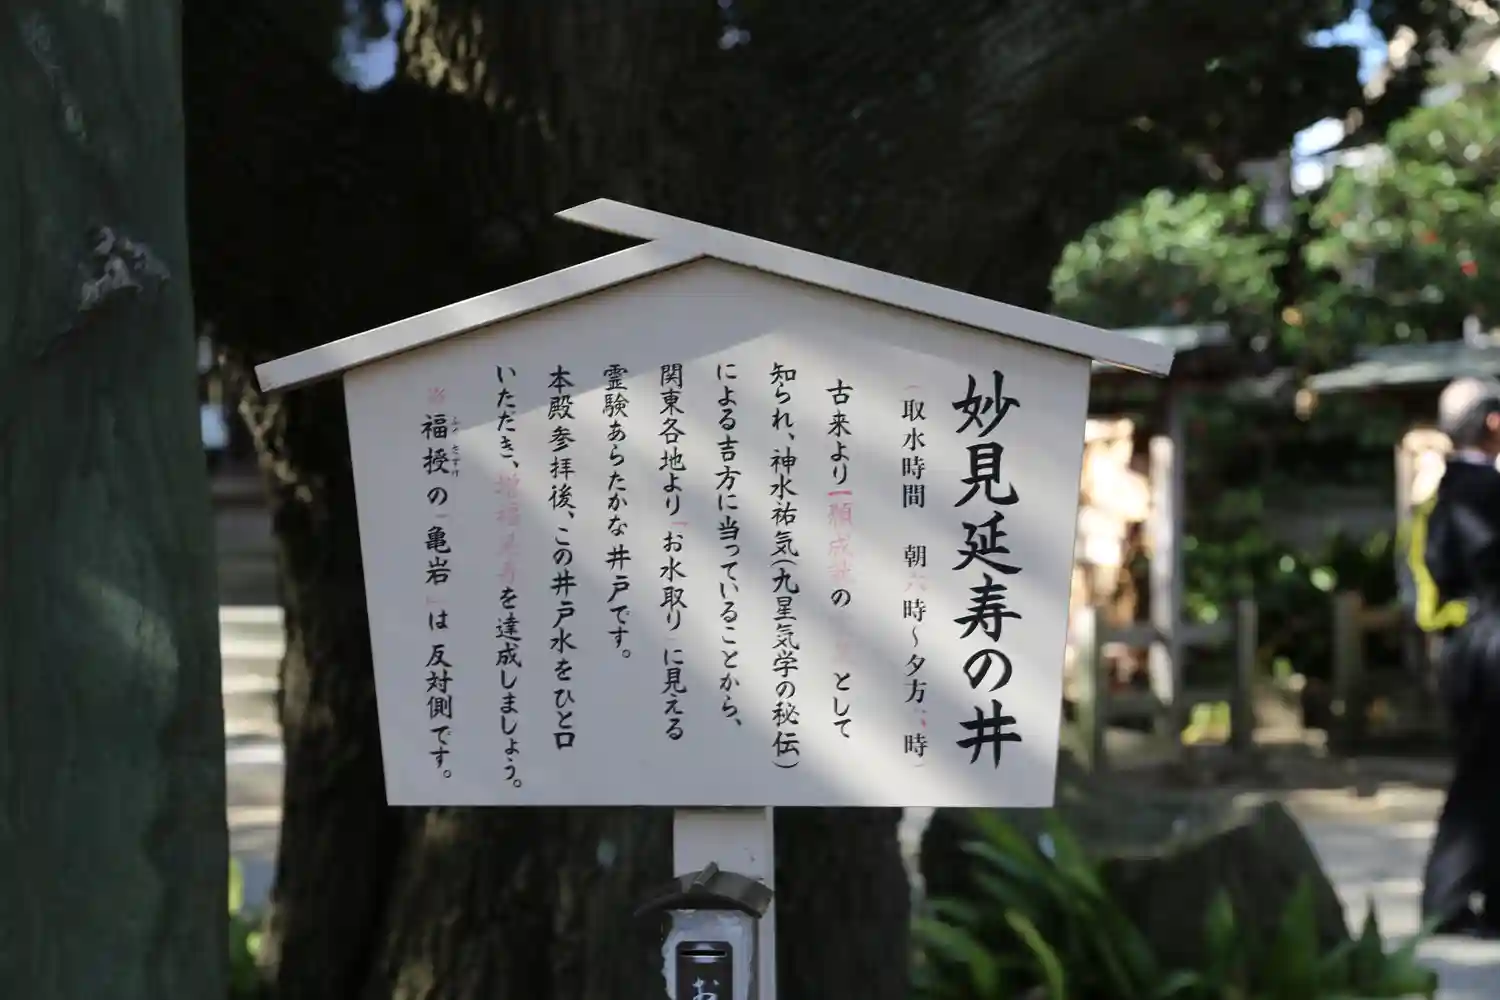 妙見延寿の井
（取水時間　朝六時～夕方六時）
古来より「一願成就」の　　として
知られ、神水祐気（九星気学の秘伝）
による吉方に当っていることから、
関東各地より「お水取り」に見える
霊験あらたかな井戸です。
本殿参拝後、この井戸水をひと口
いただき、増福延寿を達成しましょう。
※福授の「亀岩」は反対側です。
ふく さずけ
お